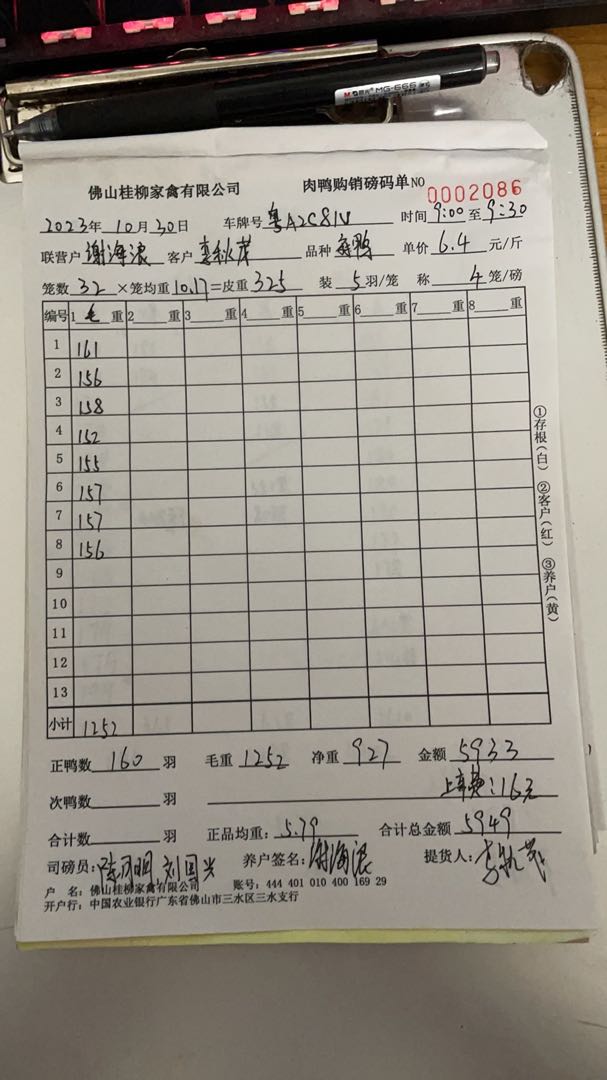 MG-666
佛山桂柳家禽有限公司 肉鸭购销磅码单 NO 0002086
2023年 10月 30日 车牌号 粤A2C81V 时间 9:00 至 9:30
联营户 谢海浪 客户 李秋茂 品种 麻鸭 单价 6.4 元/斤
笼数 32 ×笼均重 10.17 =皮重 325 装 5 羽/笼 称 4 笼/磅
编号 1 毛 重 2 重 3 重 4 重 5 重 6 重 7 重 8 重
1 161
2 156
3 158
4 152
5 155
6 157
7 157
8 156
9
10
11
12
13
小计 1252
①存根(白) ②客户(红) ③养户(黄)
正鸭数 160 羽 毛重 1252 净重 927 金额 5933
次鸭数 羽 上车费:16元
合计数 羽 正品均重: 5.79 合计总金额 5949
司磅员: 刘国兴 养户签名: 谢海浪 提货人: 李秋茂
户 名: 佛山桂柳家禽有限公司 账号: 444 401 010 400 169 29
开户行: 中国农业银行广东省佛山市三水区三水支行